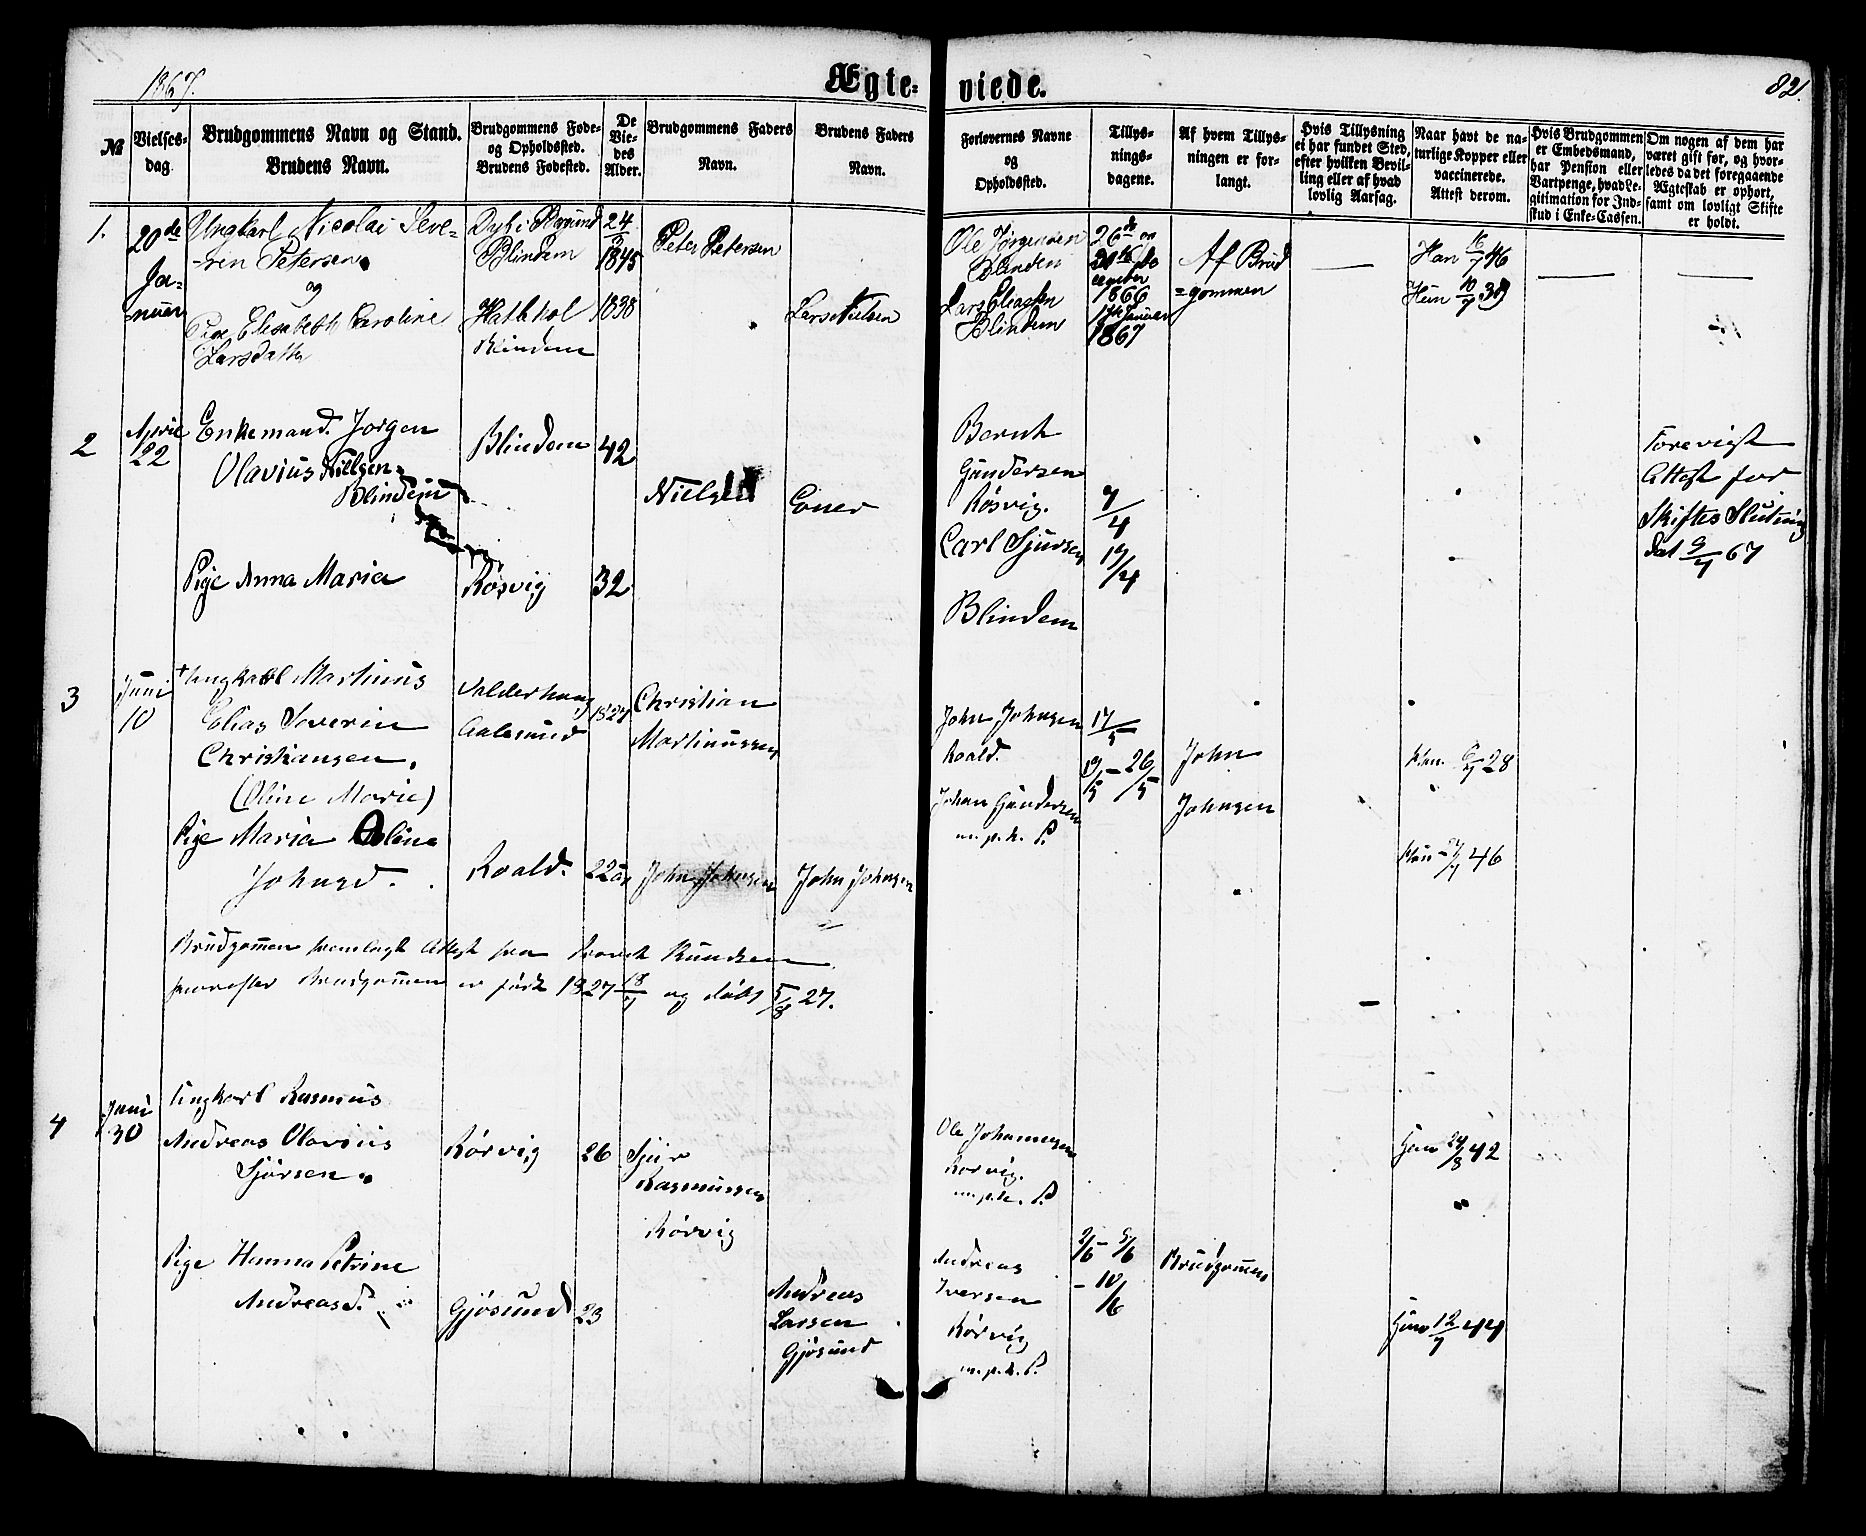 1867.
Ægte-viede.
82.
№
Vielses-
dag.
Brudgommens Navn og Stand.
Brudens Navn.
Brudgommens Føde-
og Opholdssted.
Brudens Fødested.
De
Vie-
des
Alder.
Brudgommens Faders
Navn.
Brudens Faders
Navn.
Forlovernes Navne
og
Opholdssted.
Tillys-
nings-
dagene.
Af hvem Tillys-
ningen er for-
langt.
Hvis Tillysning
ei har fundet Sted,
efter hvilken Bevil-
ling eller af hvad
lovlig Aarsag.
Naar havt de na-
turlige Kopper eller
vaccinerede.
Attest derom.
Hvis Brudgommen
er Embedsmand,
har Pension eller
Vartpenge, hvad Le-
gitimation for Ind-
skud i Enke-Cassen.
Om nogen af dem har
været gift før, og hvor-
ledes da det foregaaende
Ægteskab er ophørt,
samt om lovligt Skifte
er holdt.
1.
20de
Ja-
nuar
Ungkarl Nicolai Seve-
-ren Petersen
og
Pige Elisabeth Caroline
Larsdatter
Blindem
24
1845
1838
Peter Petersen
Lars Nielsen
Ole Jørgensen
Blindem
Lars
Blindem
26de og
1866
Januar
1867
Af Brud
=gommen
Han 16/7 46
Hun 10/7 39
2
April
22
Enkemand Jørgen
Olavius Nielsen
Blindem
Pige Anna Maria
Blindem
Røsvig
42
32
Niels
Ener
Bernt
Gundersen
Røsvig.
Carl Sjursen
Blindem
7/4
19/4
Forevist
Attest for
Skiftes Slutning
dat 9/4 67
3
Juni
10
Ungkarl Martinus
Elias Severin
Christiansen.
(Oline Marie)
Pige Maria Oline
Johnsd.
Valderhaug
Aalesund
Roald.
1827
22 år
Christian
Martinussen
John Johnsen
John Johnsen
John Johnsen
Roald.
Johan Gundersen
m. p. k. P.
17/5
19/5 - 26/5
John
Johnsen
Han 28
Hun 46
Brudgommen fremlagt Attest fra Knudsen
hvorefter Brudgommen er født 1827 18/7 og døbt 5/8 27.
4
Juni
30
Ungkarl Rasmus
Andreas Olavius
Sjursen
Pige Hanna Petrine
Andreasd.
Rørvig
Gjøsund
26
23
Sjur
Rasmussen
Rørvig
Andreas
Larsen
Gjøsund
Ole Johannesen
Rørvig.
m. p. k. P.
Andreas
Iversen
Rørvig
m. p. k. P.
2/6 - 5/6
- 10/6
Brudgommen
Han 24/8 42
Hun 12/7 44